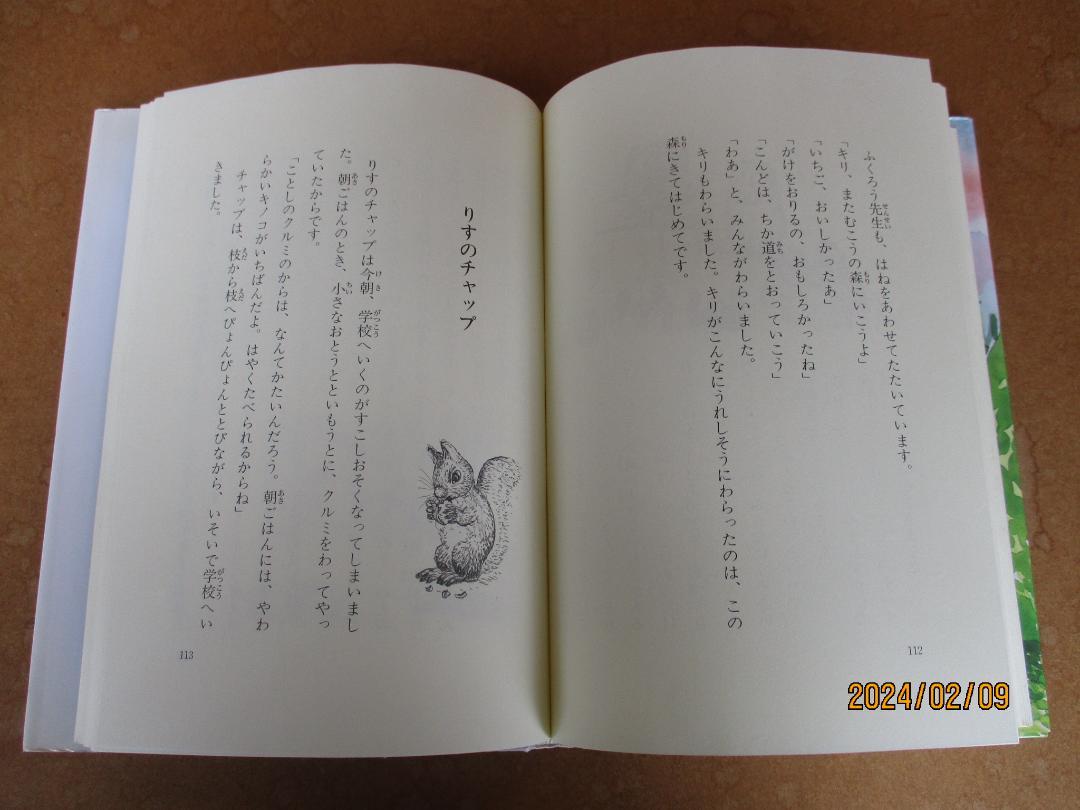 ふくろう先生も、はねをあわせてたたいています。
「キリ、またむこうの森にいこうよ」
「いちご、おいしかったあ」
「がけをおりるの、おもしろかったね」
「こんどは、ちか道をとおっていこう」
「わあ」と、みんながわらいました。
キリもわらいました。キリがこんなにうれしそうにわらったのは、この
森にきてはじめてです。
112
りすのチャップ
りすのチャップは今朝、学校へいくのがすこしおそくなってしまいまし
た。朝ごはんのとき、小さなおとうとといもうとに、クルミをわってやっ
ていたからです。
「ことしのクルミのからは、なんてかたいんだろう。朝ごはんには、やわ
らかいキノコがいちばんだよ。はやくたべられるからね」
チャップは、枝から枝へぴょんぴょんととびながら、いそいで学校へい
きました。
113
2024/02/09